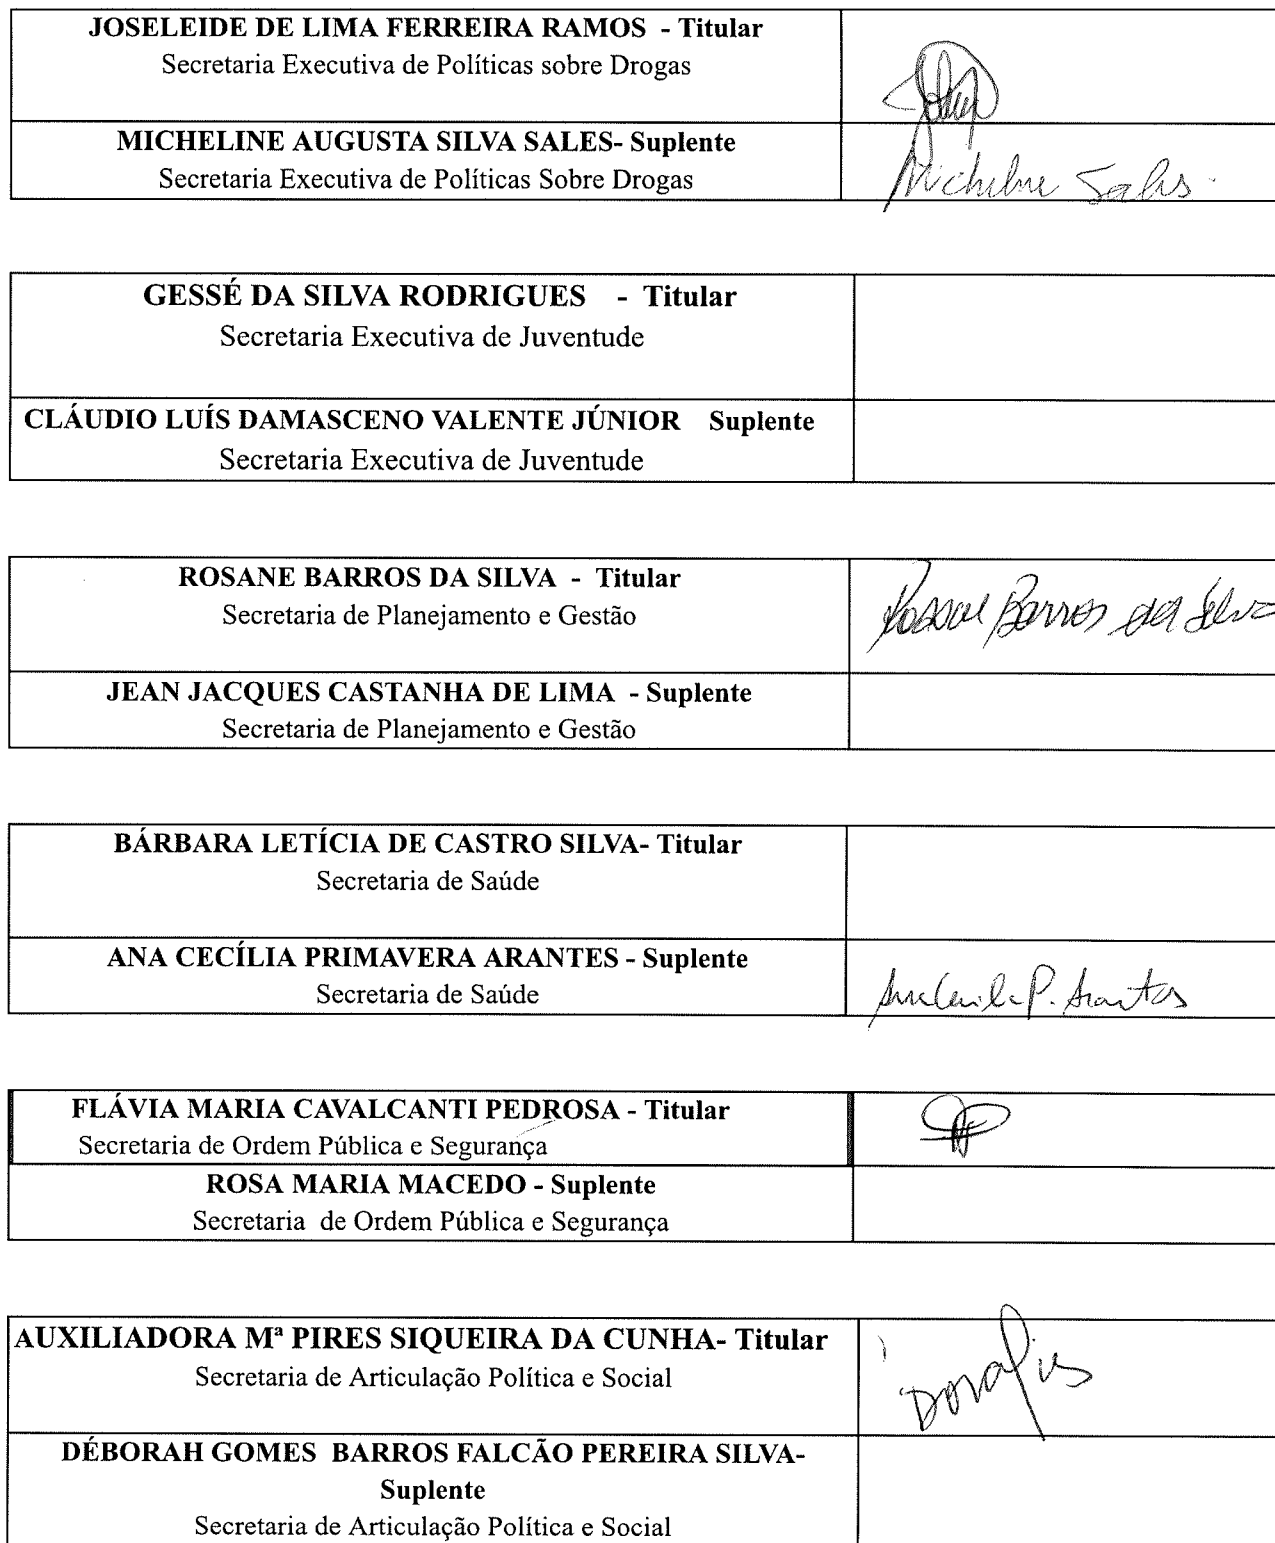 JOSELEIDE DE LIMA FERREIRA RAMOS - Titular
Secretaria Executiva de Políticas sobre Drogas
MICHELINE AUGUSTA SILVA SALES- Suplente
Secretaria Executiva de Políticas Sobre Drogas
Micheline Sales
GESSÉ DA SILVA RODRIGUES - Titular
Secretaria Executiva de Juventude
CLÁUDIO LUÍS DAMASCENO VALENTE JÚNIOR Suplente
Secretaria Executiva de Juventude
ROSANE BARROS DA SILVA - Titular
Secretaria de Planejamento e Gestão
Rosane Barros da Silva
JEAN JACQUES CASTANHA DE LIMA - Suplente
Secretaria de Planejamento e Gestão
BÁRBARA LETÍCIA DE CASTRO SILVA- Titular
Secretaria de Saúde
ANA CECÍLIA PRIMAVERA ARANTES - Suplente
Secretaria de Saúde
Ana Cecília P. Arantes
FLÁVIA MARIA CAVALCANTI PEDROSA - Titular
Secretaria de Ordem Pública e Segurança
ROSA MARIA MACEDO - Suplente
Secretaria de Ordem Pública e Segurança
AUXILIADORA Mª PIRES SIQUEIRA DA CUNHA- Titular
Secretaria de Articulação Política e Social
DÉBORAH GOMES BARROS FALCÃO PEREIRA SILVA-
Suplente
Secretaria de Articulação Política e Social